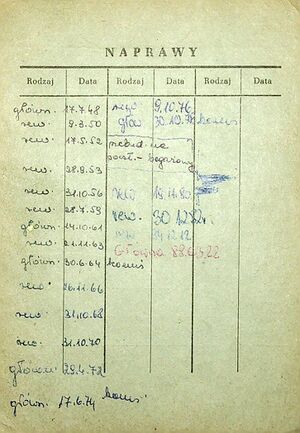 NAPRAWY
Rodzaj Data Rodzaj Data Rodzaj Data
główn. 17.7.48
rew. 9.3.50
rew. 17.5.52
rew. 28.9.53
rew. 31.10.56
rew. 28.7.59
główn. 14.10.61
rew. 21.11.63
główn. 30.6.64 komis
rew. 26.11.66
rew. 31.10.68
rew. 31.10.70
główn. 29.4.72
główn. 17.6.74 komis.
9.10.76
głów 30.10.78 komis
na
rew 19.11.80
rew. 30.12.82r.
Główna 88.03.22